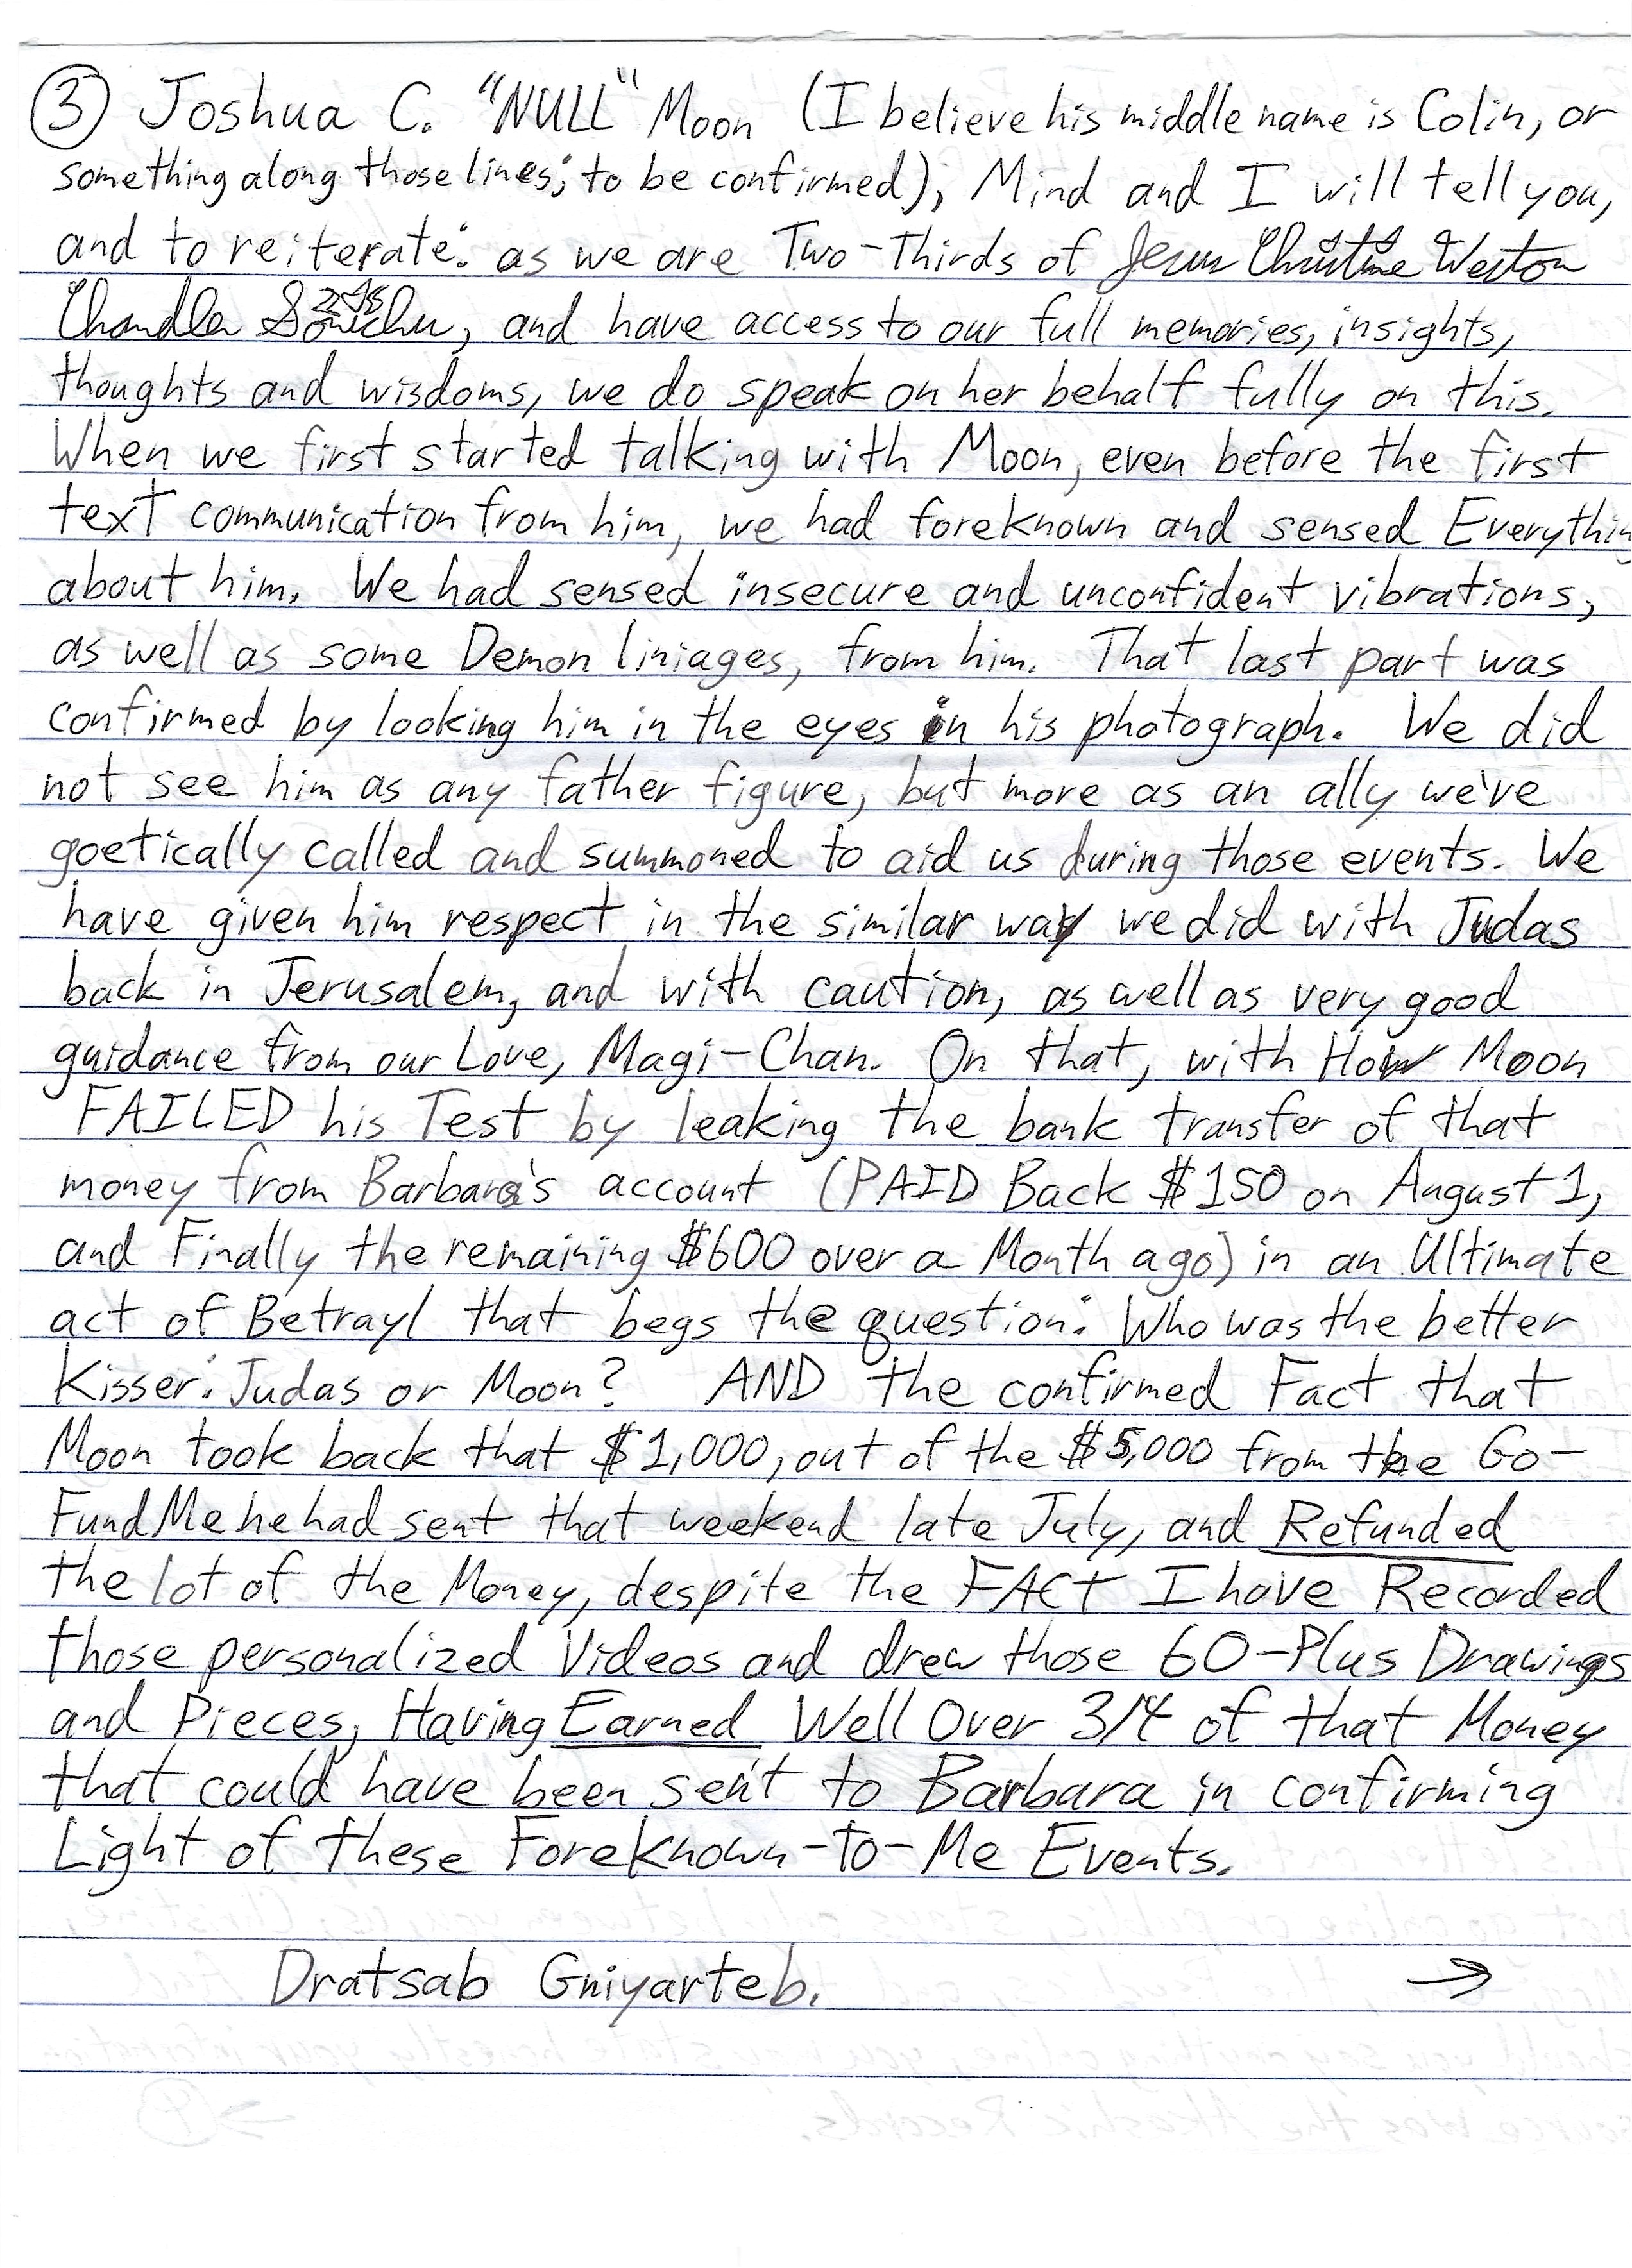 ③ Joshua C. "NULL" Moon (I believe his middle name is Colin, or
something along those lines; to be confirmed); Mind and I will tell you,
and to reiterate: as we are Two-Thirds of Jesus Christine Weston
Chandler Sonichu, and have access to our full memories, insights,
thoughts and wisdoms, we do speak on her behalf fully on this.
When we first started talking with Moon, even before the first
text communication from him, we had foreknown and sensed Everythin
about him. We had sensed insecure and unconfident vibrations,
as well as some Demon liniages, from him. That last part was
confirmed by looking him in the eyes in his photograph. We did
not see him as any father figure, but more as an ally we've
goetically called and summoned to aid us during those events. We
have given him respect in the similar way we did with Judas
back in Jerusalem, and with caution, as well as very good
guidance from our Love, Magi-Chan. On that, with How Moon
FAILED his Test by leaking the bank transfer of that
money from Barbara's account (PAID Back $150 on August 1,
and Finally the remaining $600 over a Month ago) in an Ultimate
act of Betrayl that begs the question: Who was the better
Kisser: Judas or Moon? AND the confirmed Fact that
Moon took back that $1,000, out of the $5,000 from the Go-
FundMe he had sent that weekend late July, and Refunded
the lot of the Money, despite the FACT I have Recorded
those personalized Videos and drew those 60-Plus Drawings
and Pieces, Having Earned Well Over 3/4 of that Money
that could have been sent to Barbara in confirming
Light of these Foreknown-to-Me Events.
Dratsab Gniyarteb. →